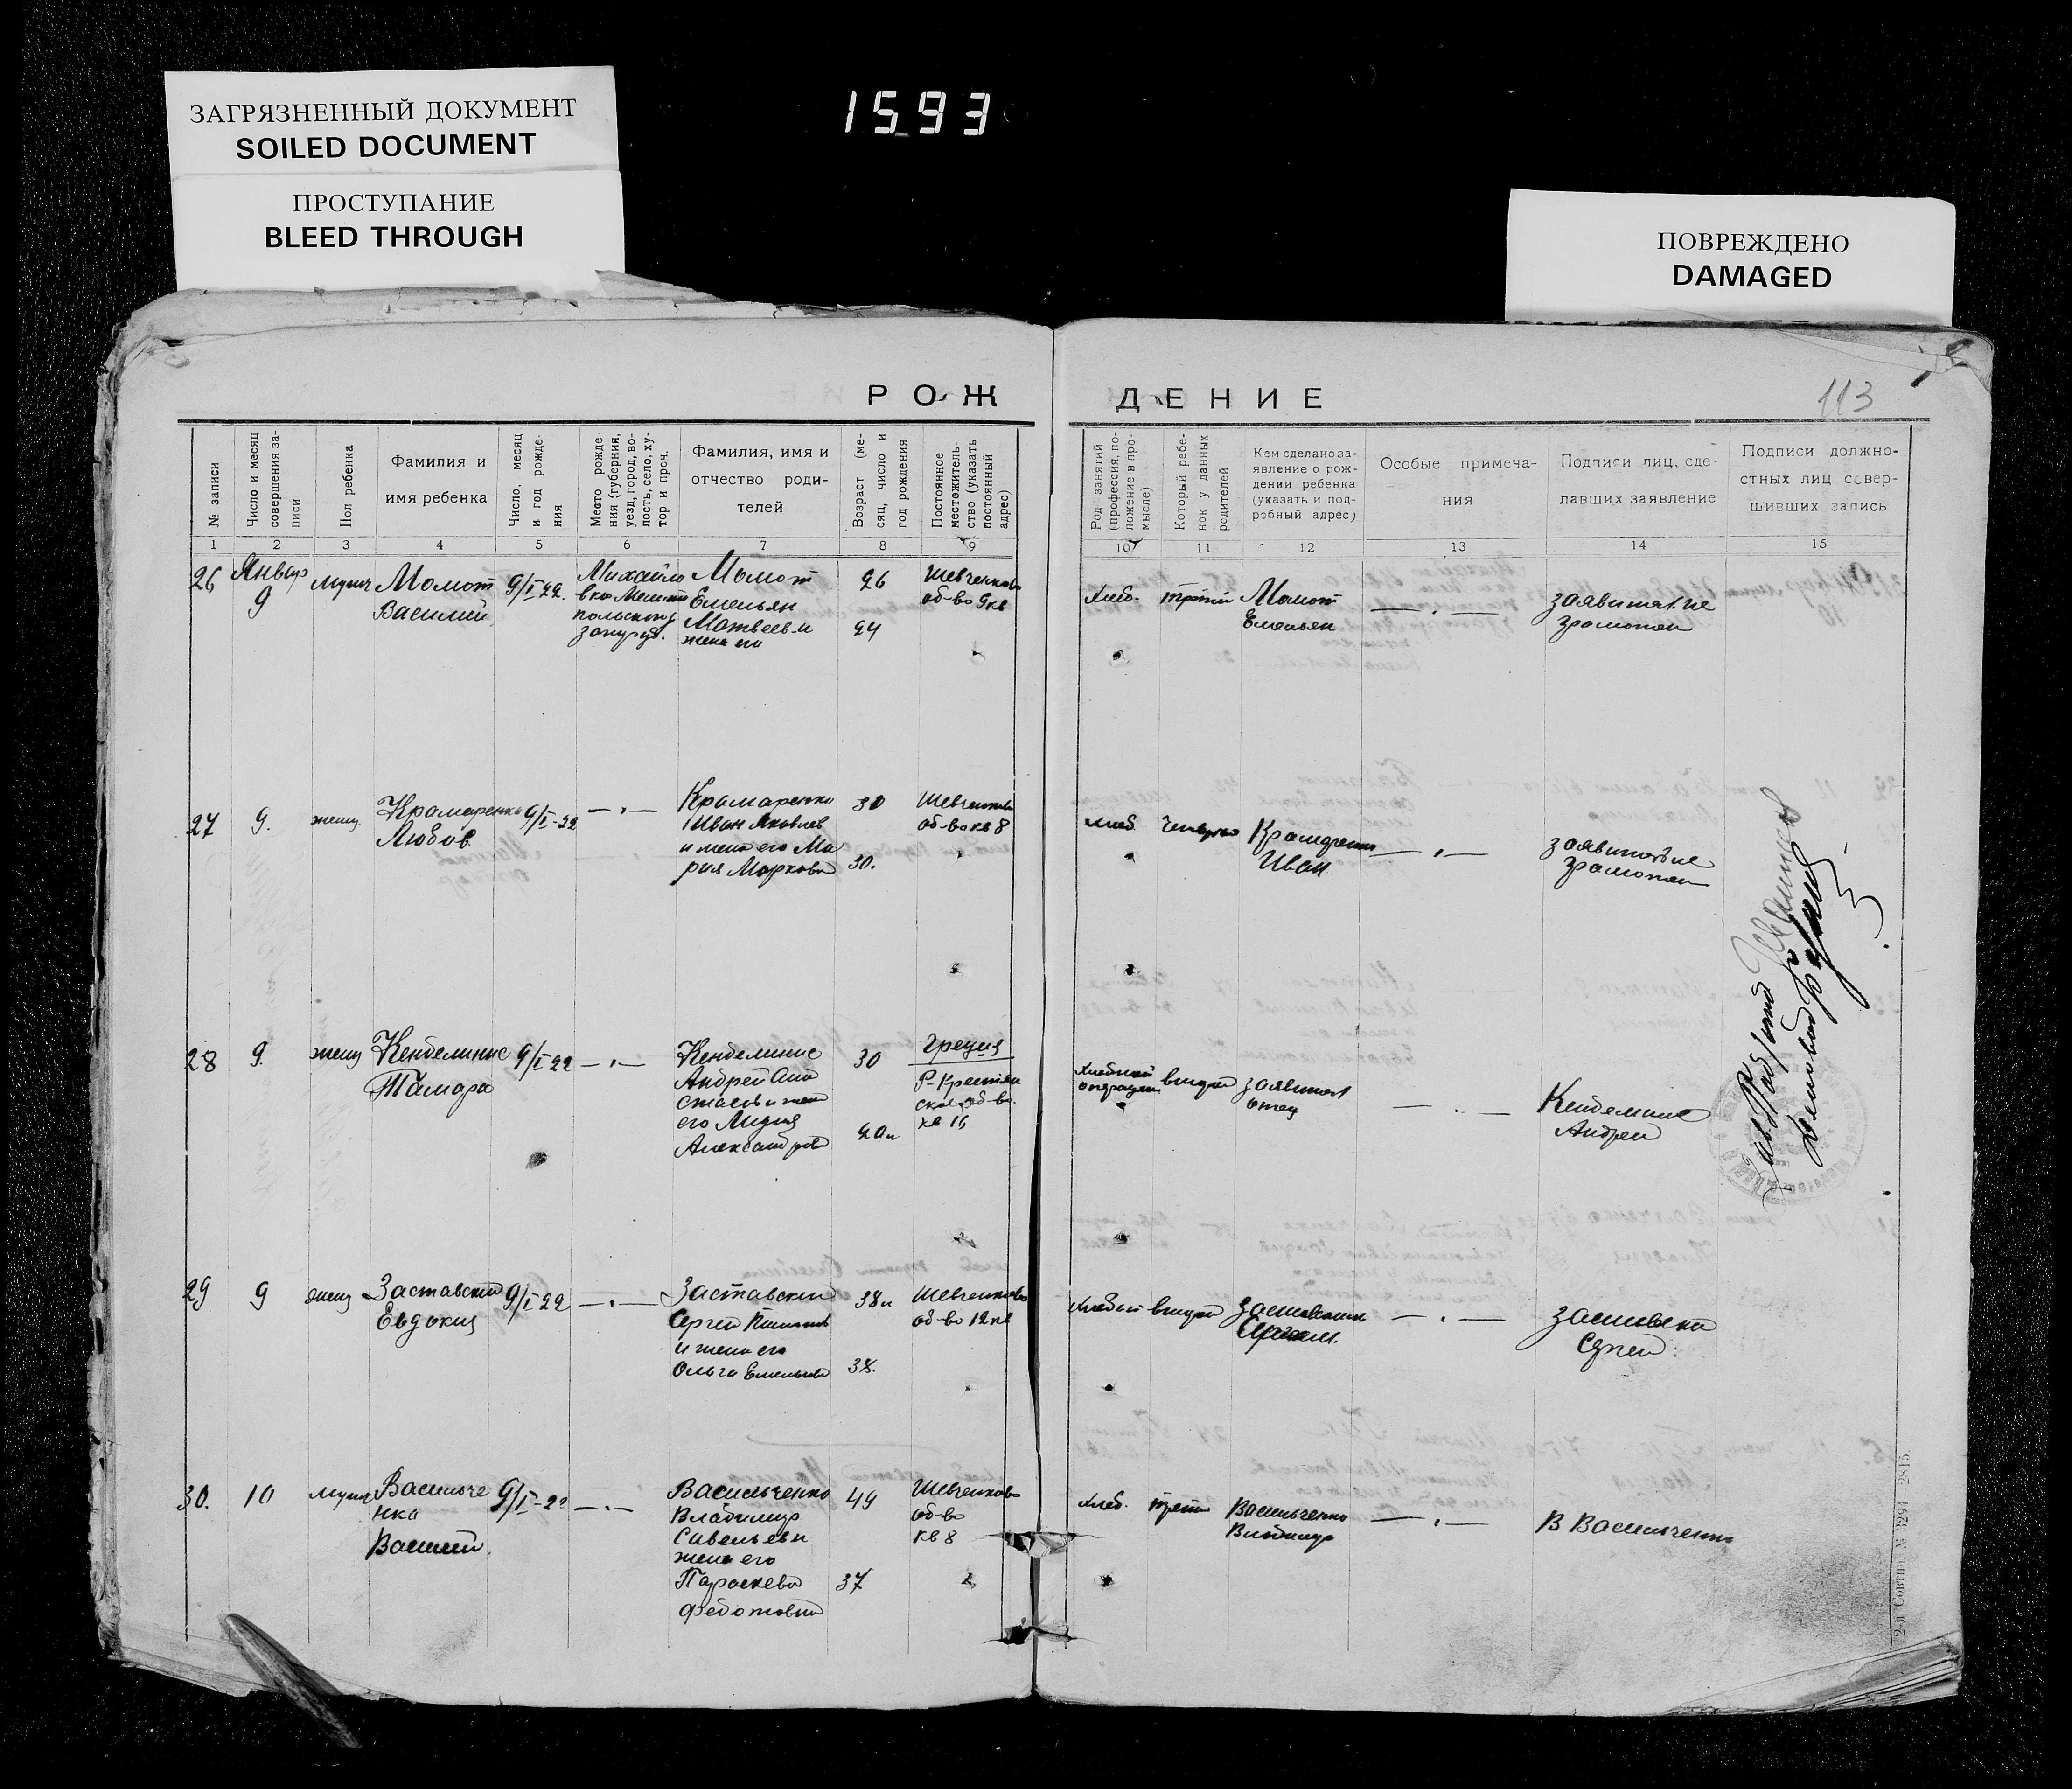 ЗАГРЯЗНЕННЫЙ ДОКУМЕНТ
SOILED DOCUMENT
ПРОСТУПАНИЕ
BLEED THROUGH
1593
ПОВРЕЖДЕНО
DAMAGED
РОЖ
ДЕНИЕ
113
№ записи
Число и месяц
совершения за-
писи
Пол ребенка
Фамилия и
имя ребенка
Число, месяц
и год рожде-
ния
Место рожде-
ния (губерния,
уезд, город, во-
лость, село, ху-
тор и проч.
Фамилия, имя и
отчество роди-
телей
Возраст (ме-
сяц, число и
год рождения
Постоянное
местожитель-
ство (указать
постоянный
адрес)
Род занятий
(профессия, по-
ложение в про-
мысле)
Который ребе-
нок у данных
родителей
Кем сделано за-
явление о рож-
дении ребенка
(указать и под-
робный адрес)
Особые примеча-
ния
Подписи лиц, сде-
лавших заявление
Подписи должно-
стных лиц совер-
шивших запись
1 2 3 4 5 6 7 8 9 10 11 12 13 14 15
26
Январ
9
мужч
Момот
Василий
9/I-22.
Михайло
вка
Момот
Емельян
Матвеев и
жена его
26
24
Шевченков
об-во 9 кв
Хлеб.
третий
Момот
Емельян
— · —
27
9.
женщ
Крамаренко
Любов
9/I-22
— · —
Крамаренко
Иван Яковлев
и жена его Ма
рия Маркова
30
30.
Шевченков
об-во кв 8
Хлеб.
Крамаренко
Иван
— · —
28
9.
женщ
Кенделинис
Тамара
9/I 22
— · —
Кенделинис
Андрей
его Лидия
Александров
30
20
Греция
Р-Крестьян
ское об-во.
кв 16
второй
отец
— · —
Кенделинис
Андрей
29
9
женщ
Заставский
Евдокия
9/I 22
— · —
Заставский
Сергей
и жена его
Ольга Емельяно
38
38.
Шевченково
об-во 12 кв
второй
Заставский
— · —
Сергей
30.
10
мужч
Васильче
нко
Василий.
9/I-22
— · —
Васильченко
Владимир
Савельев и
жена его
Параскева
Федотовна
49
37
Шевченково
об-во
кв 8
Хлеб.
трети
Васильченко
Владимир
— · —
В Васильченко